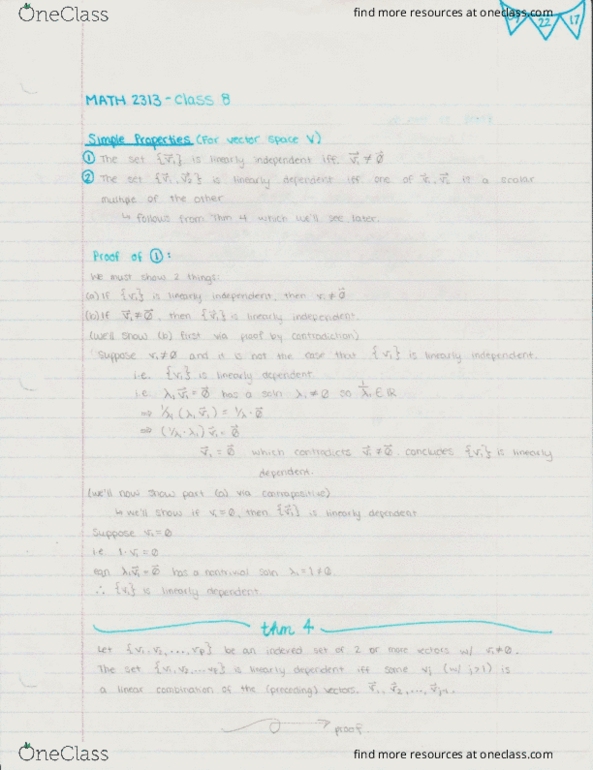 OneClass
find more resources at oneclass.com
22
17
MATH 2313 - Class 8
Simple Properties (for vector space V)
① The set {v⃗₁} is linearly independent iff v⃗₁ ≠ 0⃗
② The set {v⃗₁, v⃗₂} is linearly dependent iff one of v⃗₁, v⃗₂ is a scalar
multiple of the other
↳ follows from Thm 4 which we'll see later.
Proof of ①:
We must show 2 things:
(a) If {v₁} is linearly independent, then v₁ ≠ 0⃗
(b) If v⃗₁ ≠ 0⃗, then {v⃗₁} is linearly independent.
(we'll show (b) first via proof by contradiction)
Suppose v₁ ≠ 0 and it is not the case that {v₁} is linearly independent.
i.e. {v₁} is linearly dependent
i.e. λ₁v⃗₁ = 0⃗ has a soln λ₁ ≠ 0 so 1/λ₁ ∈ ℝ
⇒ 1/λ₁ (λ₁v⃗₁) = 1/λ₁ · 0⃗
⇒ (1/λ₁ · λ₁) v⃗₁ = 0⃗
v⃗₁ = 0⃗ which contradicts v⃗₁ ≠ 0⃗. concludes {v₁} is linearly
dependent.
(we'll now show part (a) via contrapositive)
↳ we'll show if v₁ = 0, then {v⃗₁} is linearly dependent
Suppose v₁ = 0
i.e. 1·v₁ = 0
eqn λ₁v⃗₁ = 0⃗ has a nontrivial soln λ₁ = 1 ≠ 0
∴ {v₁} is linearly dependent.
thm 4
Let {v₁, v₂, ..., vp} be an indexed set of 2 or more vectors w/ v₁ ≠ 0.
The set {v₁, v₂, ... vp} is linearly dependent iff some vj (w/ j>1) is
a linear combination of the (preceding) vectors, v⃗₁, v⃗₂, ..., v⃗j-1.
proof.
OneClass
find more resources at oneclass.com